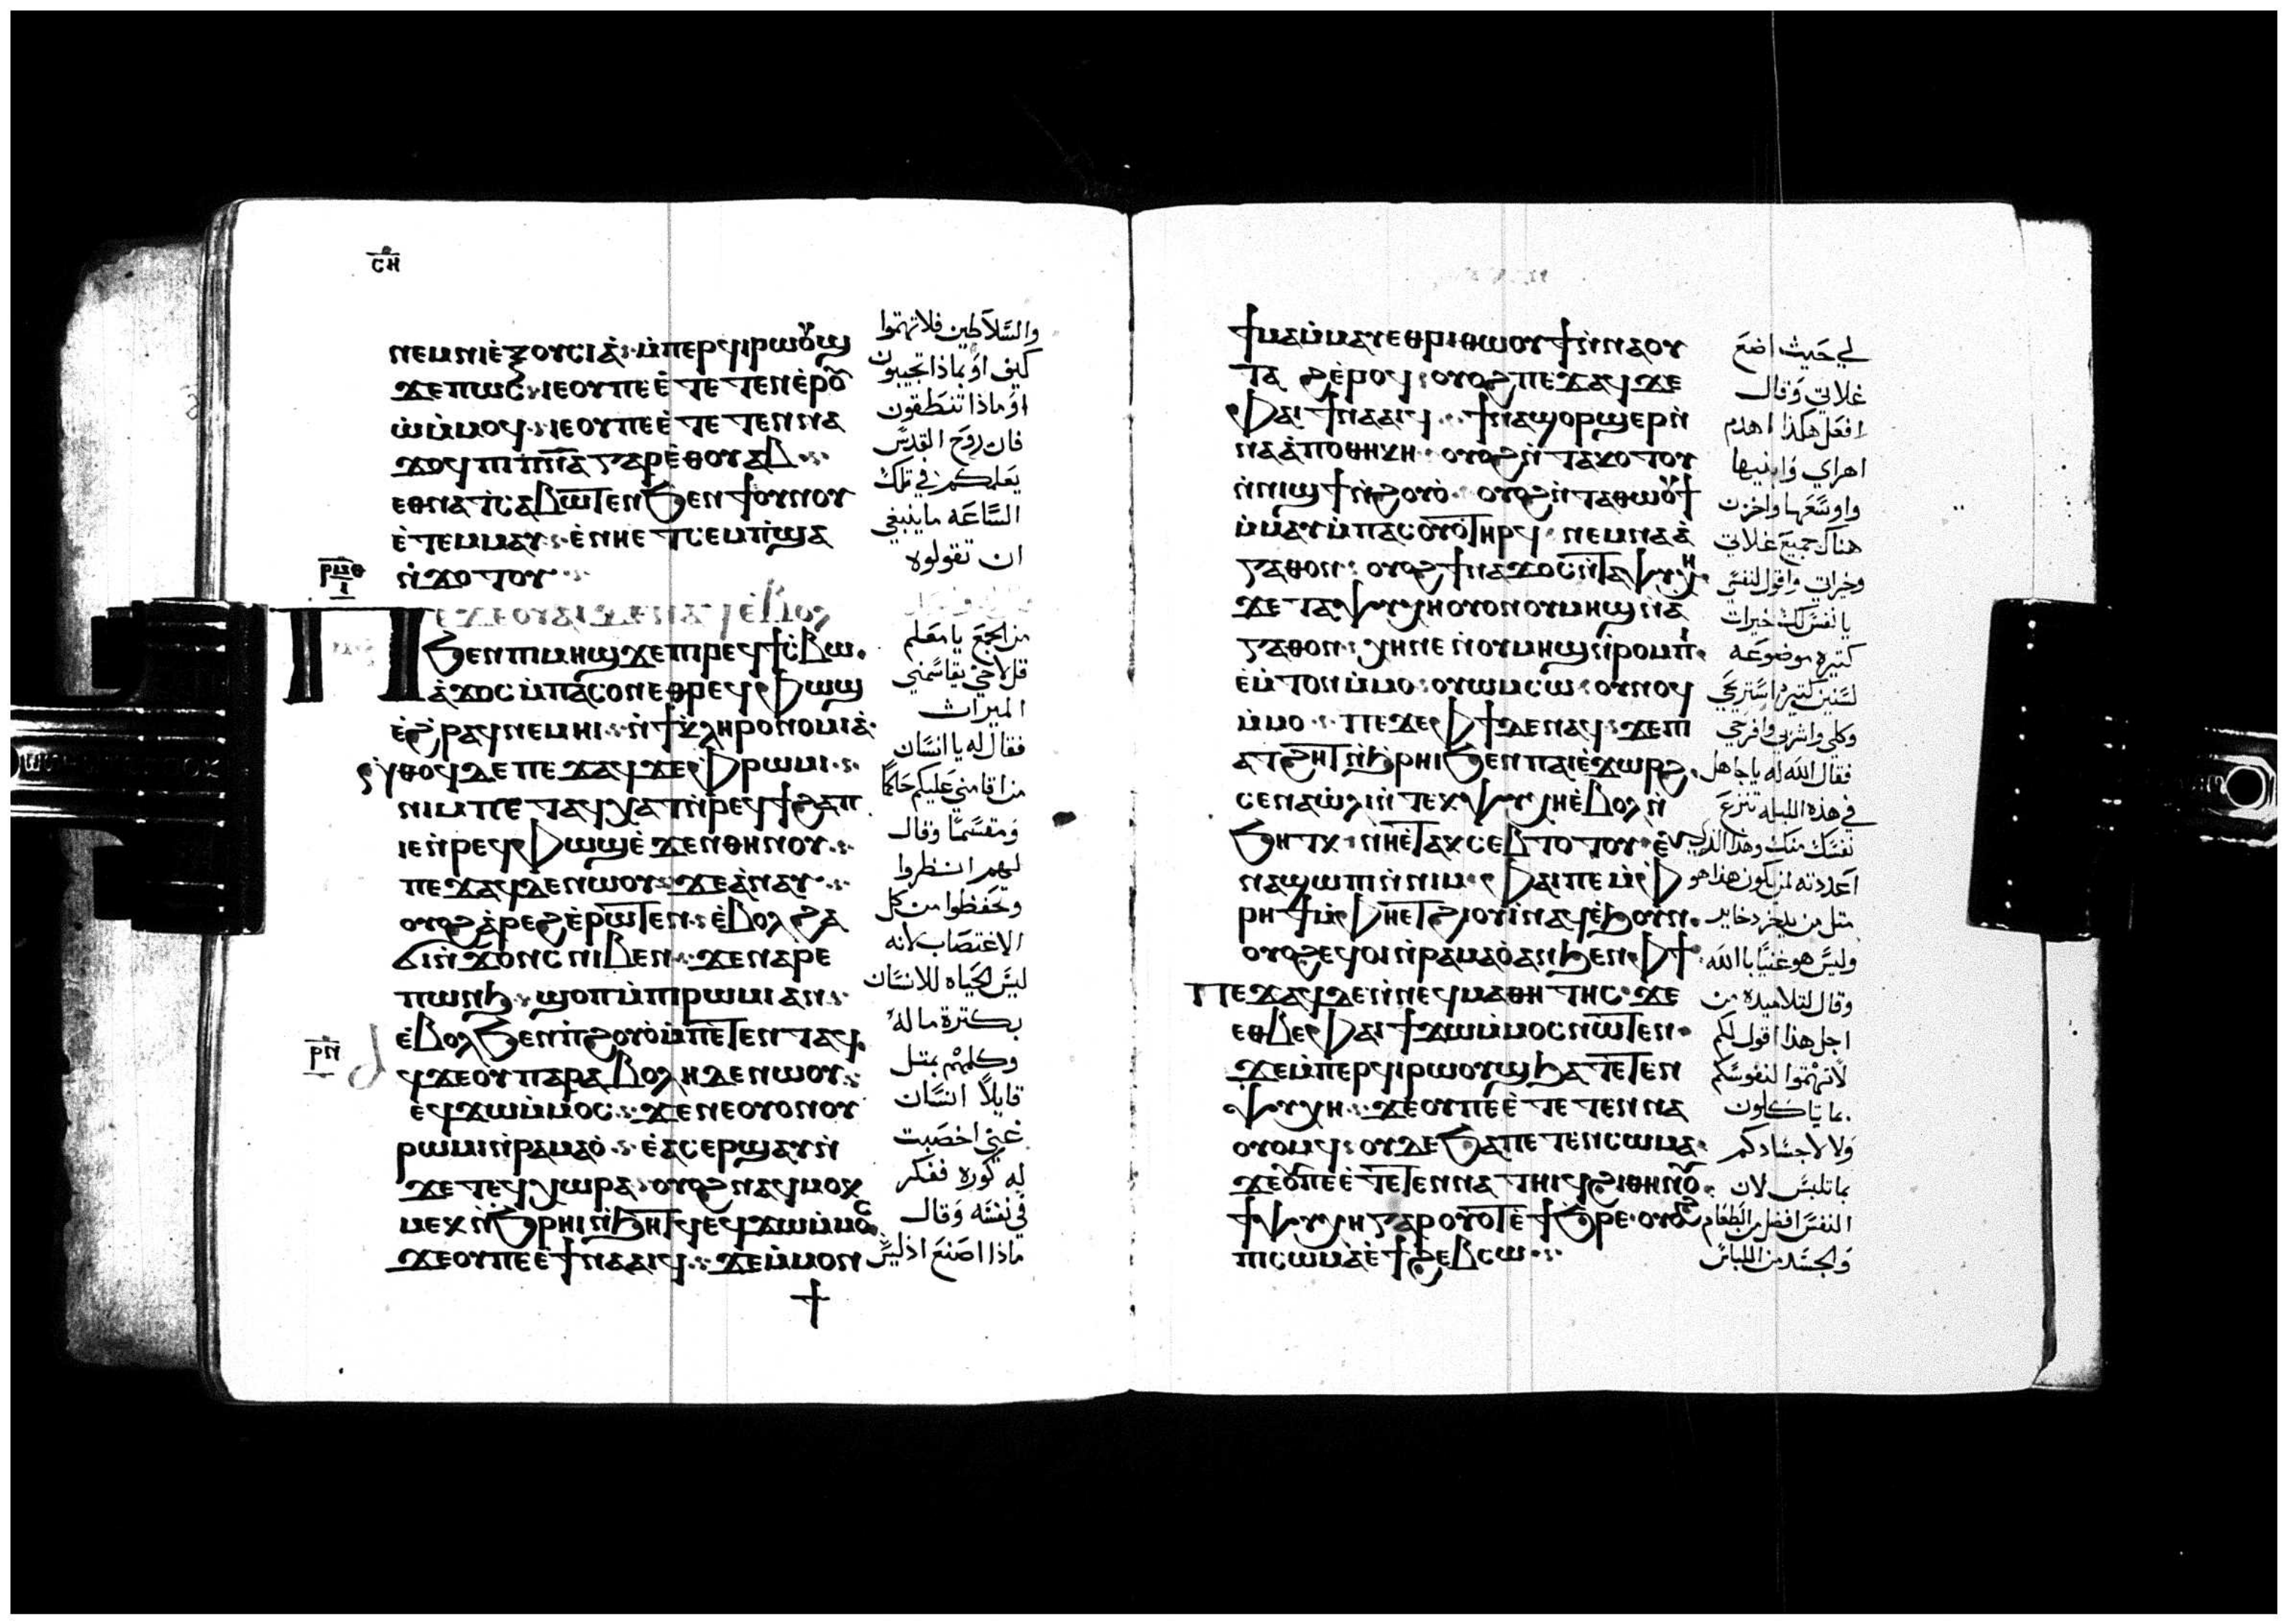 ⲥⲏ
ⲛⲉⲙⲛⲓⲉ̀ⲝⲟⲩⲥⲓⲁ̀ ⲙ̀ⲡⲉⲣϥⲓⲣⲱⲟⲩϣ
ϫⲉⲡⲱⲥ ⲓⲉⲟⲩⲡⲉⲉ̀ⲧⲉⲧⲉⲛⲉ̀ⲣⲟⲩ
ⲱ̀ⲙ̀ⲙⲟϥ ⲓⲉⲟⲩⲡⲉⲉ̀ⲧⲉⲧⲉⲛⲛⲁ
ϫⲟϥ ⲡⲓⲡ̅ⲛ̅ⲁ̅ ⲅⲁⲣⲉ̀ⲑⲟⲩⲁⲃ
ⲉⲑⲛⲁⲧⲥⲁⲃⲱⲧⲉⲛϧⲉⲛϯⲟⲩⲛⲟⲩ
ⲉ̀ⲧⲉⲙⲙⲁⲩ ⲉ̀ⲛⲏⲉⲧⲥⲉⲙⲡ̀ϣⲁ
ⲛ̀ϫⲟⲧⲟⲩ
ⲣⲙⲑ
ⲓ
ϧⲉⲛⲡⲓⲙⲏϣϫⲉⲡⲓⲣⲉϥϯⲥ̀ⲃⲱ
ⲁ̀ϫⲟⲥⲙ̀ⲡⲁⲥⲟⲛⲉⲑⲣⲉϥⲫⲱϣ
ⲉ̀ϩ̀ⲣⲁϥⲛⲉⲙⲏⲓ ⲛ̀ϯⲕ̀ⲗⲏⲣⲟⲛⲟⲙⲓⲁ̀
ⲛ̀ⲑⲟϥⲇⲉⲡⲉϫⲁϥϫⲉⲫⲣⲱⲙⲓ
ⲛⲓⲙⲡⲉⲧⲁϥⲭⲁⲧⲛ̀ⲣⲉϥϯϩⲁⲡ
ⲓⲉⲛ̀ⲣⲉϥⲫⲱϣⲉ̀ϫⲉⲛⲑⲏⲛⲟⲩ
ⲡⲉϫⲁϥⲇⲉⲛⲱⲟⲩ ϫⲉⲁ̀ⲛⲁⲩ
ⲟⲩⲟϩⲁ̀ⲣⲉϩⲉ̀ⲣⲱⲧⲉⲛ ⲉ̀ⲃⲟⲗϩⲁ
ϭⲓⲛ̀ϫⲟⲛⲥⲛⲓⲃⲉⲛ ϫⲉⲛⲁⲣⲉ
ⲡⲱⲛϧ ϣⲟⲡⲙ̀ⲡⲓⲣⲱⲙⲓⲁⲛ
ⲉ̀ⲃⲟⲗϧⲉⲛⲡ̀ϩⲟⲩⲟ̀ⲙ̀ⲡⲉⲧⲉⲛⲧⲁϥ
ⲣⲛ
ϥϫⲉⲟⲩⲡⲁⲣⲁⲃⲟⲗⲏⲇⲉⲛⲱⲟⲩ
ⲉϥϫⲱⲙ̀ⲙⲟⲥ ϫⲉⲛⲉⲟⲩⲟⲛⲟⲩ
ⲣⲱⲙⲓⲛ̀ⲣⲁⲙⲁⲟ̀ ⲉ̀ⲁⲥⲉⲣϣⲁⲩⲛ̀
ϫⲉⲧⲉϥⲭⲱⲣⲁ ⲟⲩⲟϩⲛⲁϥⲙⲟⲕ
ⲙⲉⲕⲛ̀ϧⲣⲏⲓⲛ̀ϧⲏⲧϥⲉϥϫⲱⲙ̀ⲙⲟⲥ
ϫⲉⲟⲩⲡⲉⲉϯⲛⲁⲁⲓϥ ϫⲉⲙ̀ⲙⲟⲛ
والسلاطين فلا تهتموا
كيف او بماذا تجيبون
او ماذا تنطقون
فان روح القدس
يعلمكم في تلك
الساعه ما ينبغي
ان تقولوه
من الجمع يا معلم
قل لاخي يقاسمني
الميراث
فقال له يا انسان
من اقامني عليكم حاكما
ومقسما وقال
لهم انظروا
وتحفظوا من كل
الاغتصاب لانه
ليس الحياه للانسان
بكثرة ما له
وكلمهم بمثل
قايلا انسان
غني اخصبت
له كورة ففكر
في نفسه وقال
ماذا اصنع اذ ليس
ϯⲙⲁⲙ̀ⲙⲁⲩⲉⲑⲣⲓⲑⲱⲟⲩϯⲛ̀ⲛⲁⲟⲩ
ⲧⲁϩⲉ̀ⲣⲟϥ ⲟⲩⲟϩⲡⲉϫⲁϥϫⲉ
ⲫⲁⲓϯⲛⲁⲁⲓϥ ϯⲛⲁϣⲟⲣϣⲉⲣⲛ̀
ⲛⲁⲁ̀ⲡⲟⲑⲏⲕⲏ ⲟⲩⲟϩⲛ̀ⲧⲁⲕⲟⲧⲟⲩ
ⲛ̀ⲛⲓϣϯⲛ̀ϩⲟⲩⲟ̀ ⲟⲩⲟϩⲛ̀ⲧⲁⲑⲱⲟⲩϯ
ⲙ̀ⲙⲁⲩⲙ̀ⲡⲁⲥⲟⲩⲟ̀ⲧⲏⲣϥ ⲛⲉⲙⲛⲁⲁ̀
ⲅⲁⲑⲟⲛ ⲟⲩⲟϩϯⲛⲁϫⲟⲥⲛ̀ⲧⲁⲯⲩⲭⲏ
ϫⲉⲧⲁⲯⲩⲭⲏⲟⲩⲟⲛⲟⲩⲙⲏϣⲛ̀ⲁ
ⲅⲁⲑⲟⲛ ⲭⲏⲛⲉⲛ̀ⲟⲩⲙⲏϣⲛ̀ⲣⲟⲙⲡⲓ
ⲉⲙ̀ⲧⲟⲛⲙ̀ⲙⲟ ⲟⲩⲱⲙⲥⲱ ⲟⲩⲛⲟϥ
ⲙ̀ⲙⲟ ⲡⲉϫⲉⲫϯⲇⲉⲛⲁϥ ϫⲉⲡⲓ
ⲁⲧϩⲏⲧⲛ̀ϧⲣⲏⲓϧⲉⲛⲡⲁⲓⲉ̀ϫⲱⲣϩ
ⲥⲉⲛⲁⲱ̀ⲗⲓⲛ̀ⲧⲉⲕⲯⲩⲭⲏⲉ̀ⲃⲟⲗⲛ̀
ϧⲏⲧⲕ ⲛⲏⲉ̀ⲧⲁⲕⲥⲉⲃⲧⲟⲧⲟⲩ ⲉⲩ
ⲛⲁϣⲱⲡⲓⲛ̀ⲛⲓⲙ ⲫⲁⲓⲡⲉⲙ̀ⲫ
ⲣⲏϯⲙ̀ⲫⲏⲉⲧϩⲓⲟⲩⲓ̀ⲛⲁϥⲉ̀ϧⲟⲩⲛ
ⲟⲩⲟϩⲉϥⲟⲓⲛ̀ⲣⲁⲙⲁⲟ̀ⲁⲛϧⲉⲛⲫϯ
ⲡⲉϫⲁϥⲇⲉⲛ̀ⲛⲉϥⲙⲁⲑⲏⲧⲏⲥ ϫⲉ
ⲉⲑⲃⲉⲫⲁⲓϯϫⲱⲙ̀ⲙⲟⲥⲛⲱⲧⲉⲛ
ϫⲉⲙ̀ⲡⲉⲣϥⲓⲣⲱⲟⲩϣϧⲁⲧⲉⲧⲉⲛ
ⲯⲩⲭⲏ ϫⲉⲟⲩⲡⲉⲉ̀ⲧⲉⲧⲉⲛⲛⲁ
ⲟⲩⲟⲙϥ ⲟⲩⲇⲉϧⲁⲡⲉⲧⲉⲛⲥⲱⲙⲁ
ϫⲉⲟⲩⲡⲉⲉ̀ⲧⲉⲧⲉⲛⲛⲁⲧⲏⲓϥϩⲓⲑⲏⲛⲟⲩ
ϯⲯⲩⲭⲏⲅⲁⲣⲟⲩⲟⲧⲉ̀ϯϧⲣⲉ ⲟⲩⲟϩ
ⲡⲓⲥⲱⲙⲁⲉ̀ϯϩⲉⲃⲥⲱ
لي حيث اضع
غلاتي وقال
افعل هكذا اهدم
اهراي وابنيها
واوسعها واخزن
هناك جميع غلاتي
وخيراتي واقول لنفسي
يا نفس لك خيرات
كثيره موضوعه
لسنين كثيره استريحي
وكلي واشربي وافرحي
فقال الله له يا جاهل
في هذه الليله تنزع
نفسك منك وهذا الذي
اعددته لمن يكون هذا هو
مثل من يدخر ذخاير
وليس هو غنيا بالله
وقال لتلاميذه من
اجل هذا اقول لكم
لا تهتموا لنفوسكم
بما تاكلون
ولا لاجسادكم
بما تلبس لان
النفس افضل من الطعام
والجسد من اللباس